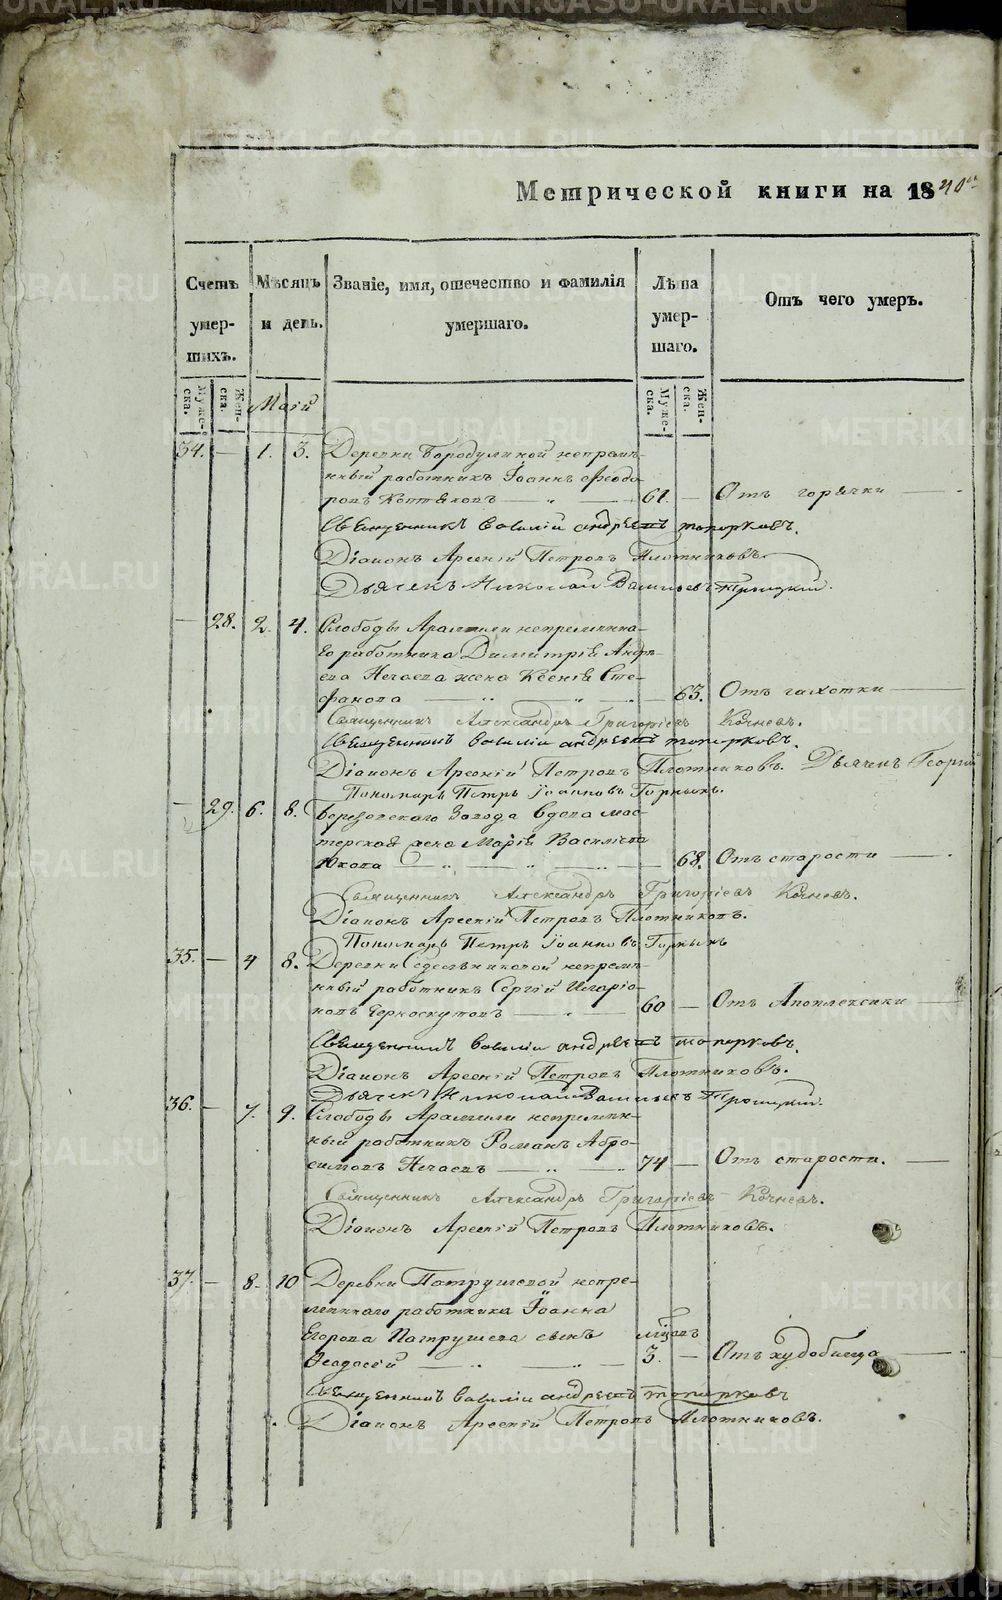 Метрической книги на 1840й
Счетъ умер-шихъ.
Мѣсяцъ и день.
Званіе, имя, отечество и фамилія умершаго.
Лѣта умер-шаго.
Отъ чего умеръ.
Муже-ска.
Жен-ска.
Маій
Муже-ска.
Жен-ска.
34. — 1. 3. Деревни Бородулиной непремѣ-
нный работникъ Іоаннъ Ѳеодо-
ровъ Коптяковъ — 61. — Отъ горячки
Священникъ Василій Андреевъ Топорковъ.
Діаконъ Арсеній Петровъ Плотниковъ
Дьячекъ Николай Васильевъ Троицкій.
— 28. 2. 4. Слободы Арамили непременна-
го работника Димитрія Андре-
ева Нечаева жена Ксенія Сте-
фанова — 63. Отъ чахотки
Священникъ Александръ Григоріевъ Кочневъ.
Священникъ Василій Андреевъ Топорковъ.
Діаконъ Арсеній Петровъ Плотниковъ. Дьячекъ Георгій
Пономарь Петръ Іоанновъ Горныхъ.
— 29. 6. 8. Березовскаго Завода вдова мас-
терская жена Марія Василіева
— 68. Отъ старости
Священникъ Александръ Григоріевъ Кочневъ.
Діаконъ Арсеній Петровъ Плотниковъ.
Пономарь Петръ Іоанновъ Горныхъ
35. — 4 8. Деревни непремѣ-
нный работникъ Сергій Иларіо-
новъ Черноскутовъ — 60 — Отъ Апоплексики
Священникъ Василій Андреевъ Топорковъ.
Діаконъ Арсеній Петровъ Плотниковъ.
Дьячекъ Николай Васильевъ Троицкій.
36. — 7. 9. Слободы Арамили непремѣн-
ный работникъ Романъ Абро-
симовъ Нечаевъ — 74 — Отъ старости.
Священникъ Александръ Григоріевъ Кочневъ.
Діаконъ Арсеній Петровъ Плотниковъ.
37. — 8. 10 Деревни Патрушевой непре-
меннаго работника Іоанна
Егорова Патрушева сынъ мѣсцовъ
Ѳеодосій — 3. — Отъ худобища
Священникъ Василій Андреевъ Топорковъ
Діаконъ Арсеній Петровъ Плотниковъ.
METRIKI.GASO-URAL.RU